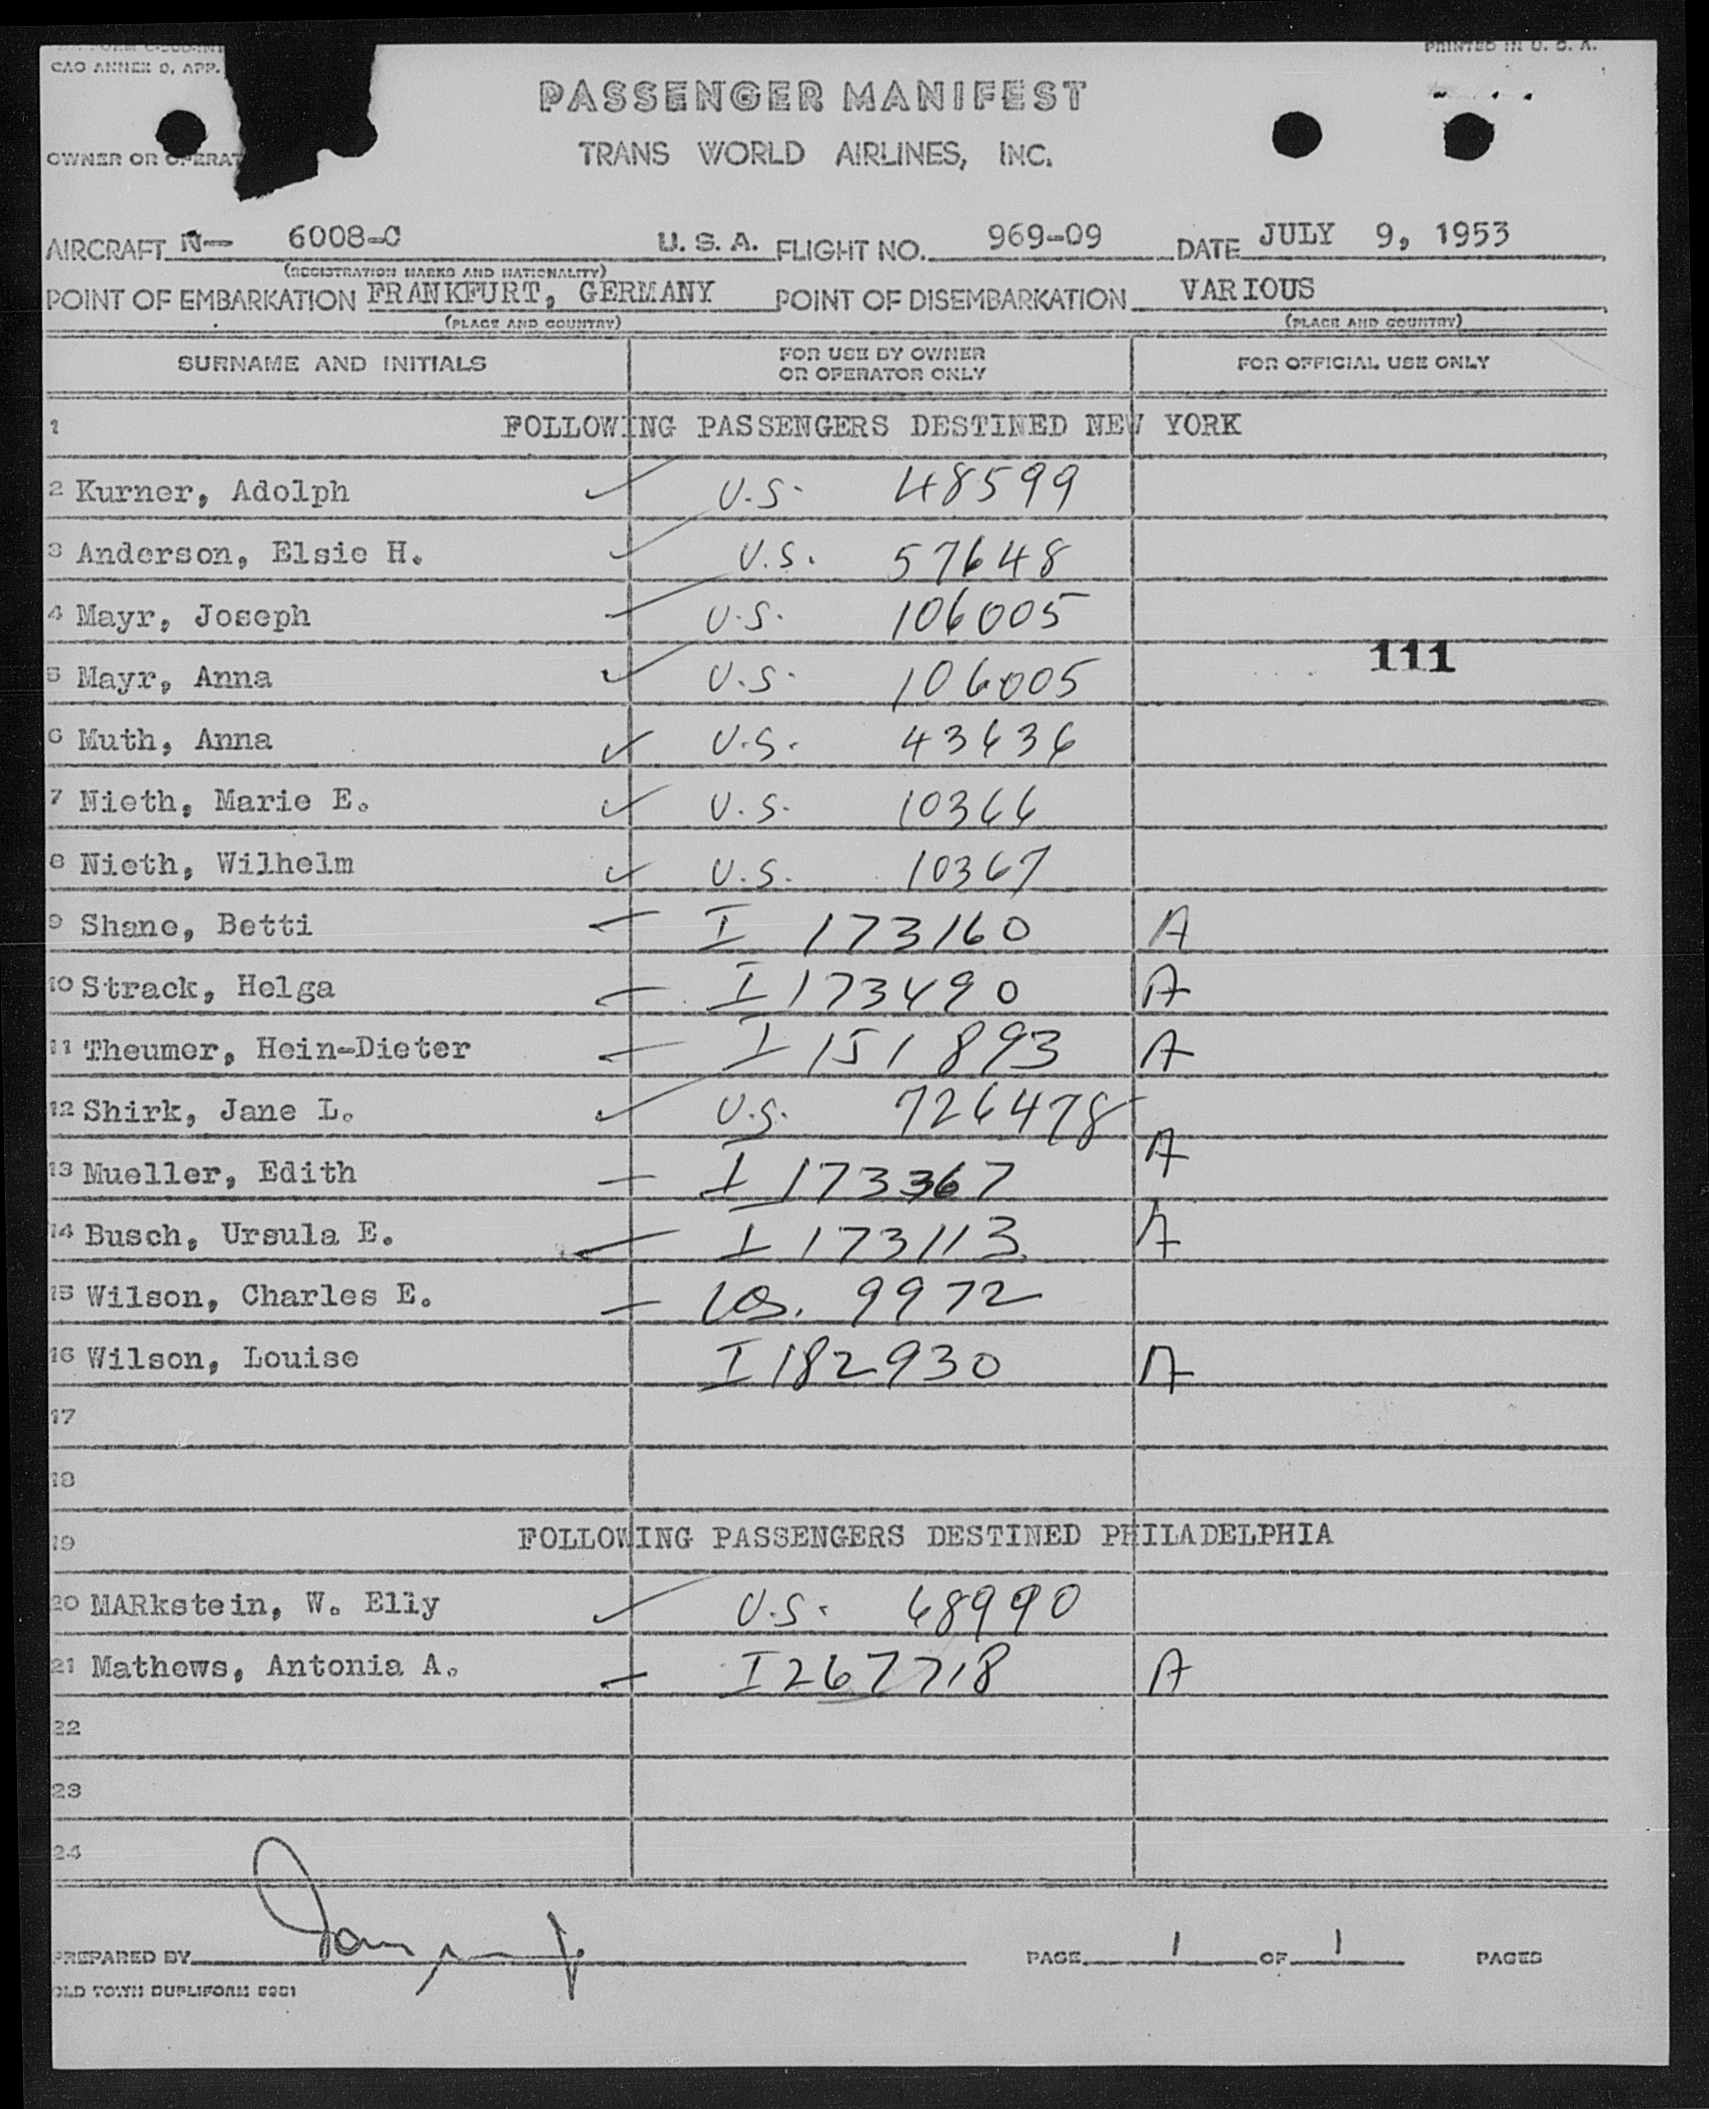 CAO ANNEX 9, APP.
PRINTED IN U. S. A.
PASSENGER MANIFEST
OWNER OR OPERAT
TRANS WORLD AIRLINES, INC.
AIRCRAFT N— 6008-C U. S. A. FLIGHT NO. 969-09 DATE JULY 9, 1953
(REGISTRATION MARKS AND NATIONALITY)
POINT OF EMBARKATION FRANKFURT, GERMANY POINT OF DISEMBARKATION VARIOUS
(PLACE AND COUNTRY) (PLACE AND COUNTRY)
SURNAME AND INITIALS FOR USE BY OWNER OR OPERATOR ONLY FOR OFFICIAL USE ONLY
1 FOLLOWING PASSENGERS DESTINED NEW YORK
2 Kurner, Adolph U.S. 48599
3 Anderson, Elsie H. U.S. 57648
4 Mayr, Joseph U.S. 106005
111
5 Mayr, Anna U.S. 106005
6 Muth, Anna U.S. 43636
7 Nieth, Marie E. U.S. 10366
8 Nieth, Wilhelm U.S. 10367
9 Shane, Betti I 173160 A
10 Strack, Helga I 173490 A
11 Theumer, Hein-Dieter I 151893 A
12 Shirk, Jane L. U.S. 726478
13 Mueller, Edith I 173367 A
14 Busch, Ursula E. I 173113 A
15 Wilson, Charles E. US. 9972
16 Wilson, Louise I 182930 A
17
18
19 FOLLOWING PASSENGERS DESTINED PHILADELPHIA
20 MARkstein, W. Elly U.S. 68990
21 Mathews, Antonia A. I 267718 A
22
23
24
PREPARED BY PAGE 1 OF 1 PAGES
OLD TOWN DUPLIFORM